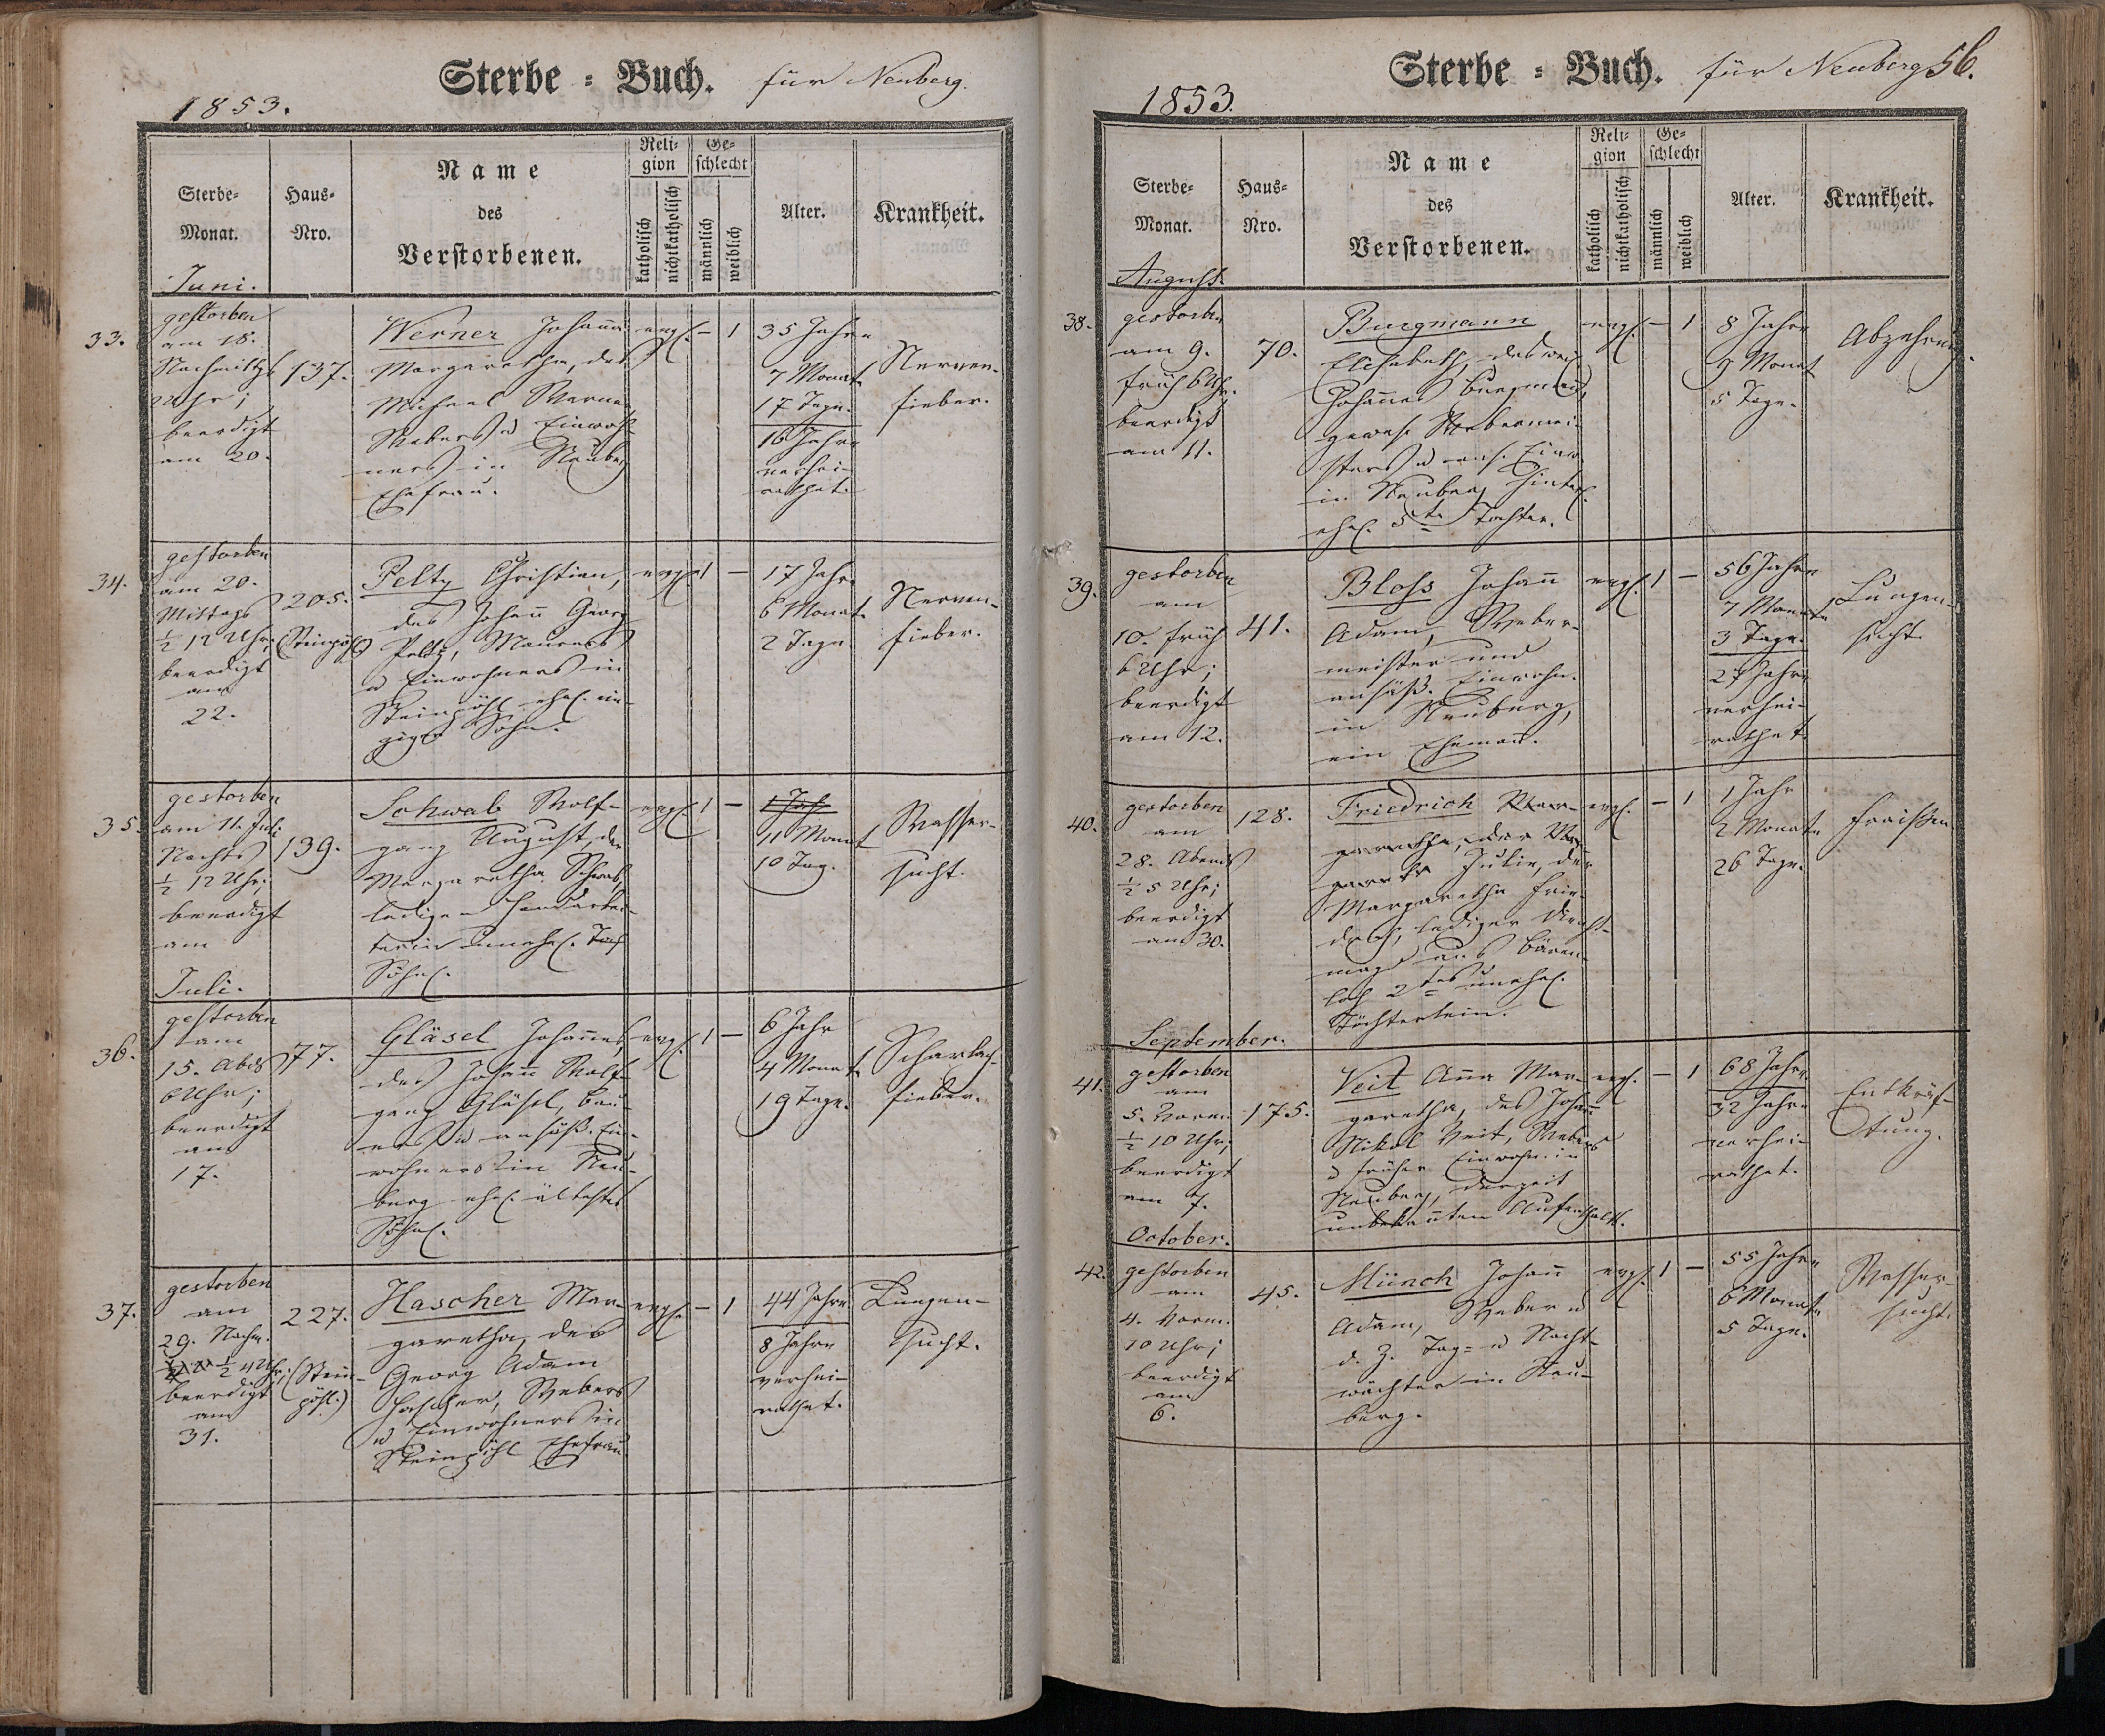 Sterbe = Buch. für Neuberg.
1853.
Sterbe-Monat.
Haus-Nro.
Name
des
Verstorbenen.
Religion
katholisch
nichtkatholisch
Geschlecht
männlich
weiblich
Alter.
Krankheit.
Juni.
33.
gestorben
am 18.
Nachmittgs
Uhr;
beerdigt
am 20.
137.
Werner Johanna
Margaretha, des
Michael Werner
Webers u Einwoh-
ners in Neuberg
Ehefrau.
evgl. – 1
35 Jahre
7 Monat
17 Tage.
16 Jahre
verhei-
rathet.
Nerven-
fieber.
34.
gestorben
am 20.
Mittags
½ 12 Uhr;
beerdigt
am
22.
205.
(Steinpöhl)
Pelty Christian,
des Johann Georg
Pelty, Maurers
u Einwohners in
Steinpöhl ehel. ein-
ziger Sohn.
evgl. 1 –
17 Jahr
6 Monat
2 Tage
Nerven-
fieber.
35.
gestorben
am 11. Juli
Nachts
½ 12 Uhr;
beerdigt
am
139.
Schwab Wolf-
gang August, der
Margaretha Schwab,
ledigen Handarbei-
terin unehel.
Söhnl.
evgl. 1 –
1 Jahr
11 Monat
10 Tag.
Wasser-
sucht.
Juli.
36.
gestorben
am
15. Abds
6 Uhr;
beerdigt
am
17.
77.
Gläsel Johannes,
des Johann Wolf-
gang Gläsel, Bau-
ers u ansäß. Ein-
wohners in Neu-
berg ehel. ältestes
Söhnl.
evgl. 1 –
6 Jahr
4 Monat
19 Tage.
Scharlach-
fieber.
37.
gestorben
am
29. Nachm.
½ 4 Uhr;
beerdigt
am
31.
227.
(Stein-
pöhl.)
Hascher Mar-
garetha, des
Georg Adam
Hascher, Webers
u Einwohners in
Steinpöhl Ehefrau
evgl. – 1
44 Jahre
8 Jahre
verhei-
rathet.
Lungen-
sucht.
Sterbe = Buch. für Neuberg 56.
1853.
Sterbe-Monat.
Haus-Nro.
Name
des
Verstorbenen.
Religion
katholisch
nichtkatholisch
Geschlecht
männlich
weiblich
Alter.
Krankheit.
August.
38.
gestorben
am 9.
früh 6 Uhr.
beerdigt
am 11.
70.
Burgmann
Elisabeth, des weil.
Johannes Burgmann,
gewes. Webermei-
sters u ans. Einw.
in Neuberg hinterl.
ehel. 5te Tochter.
evgl. – 1
8 Jahre
9 Monat
5 Tage.
Abzehrung.
39.
gestorben
am
10. früh
6 Uhr;
beerdigt
am 12.
41.
Bloß Johann
Adam, Weber-
meister und
ansäß. Einwohn.
in Neuberg,
ein Ehemann.
evgl. 1 –
56 Jahre
7 Monate
3 Tage.
27 Jahre
verhei-
rathet
Lungen-
sucht
40.
gestorben
am
28. Abends
½ 5 Uhr;
beerdigt
am 30.
128.
Friedrich Mar-
garetha, der Mar-
garetha Julie, der
Margaretha Frie-
drich, lediger Dienst-
magd aus Bären-
loh 2tes unehel.
Töchterlein.
evgl. – 1
1 Jahr
2 Monate
26 Tage.
Fraißen
September.
41.
gestorben
am
5. Vorm.
½ 10 Uhr;
beerdigt
am 7.
175.
Veit Anna Mar-
garetha, des Johann
Nikol Veit, Webers
u früher Einwohn. in
Neuberg, derzeit
unbekannten Aufenthalts.
evgl. – 1
68 Jahre
32 Jahre
verhei-
rathet.
Entkräf-
tung.
October.
42.
gestorben
am
4. Vorm.
10 Uhr;
beerdigt
am
6.
45.
Münch Johann
Adam, Weber u
d. Z. Tag- u Nacht-
wächter in Neu-
berg.
evgl. 1 –
55 Jahre
6 Monate
5 Tage.
Wasser-
sucht.